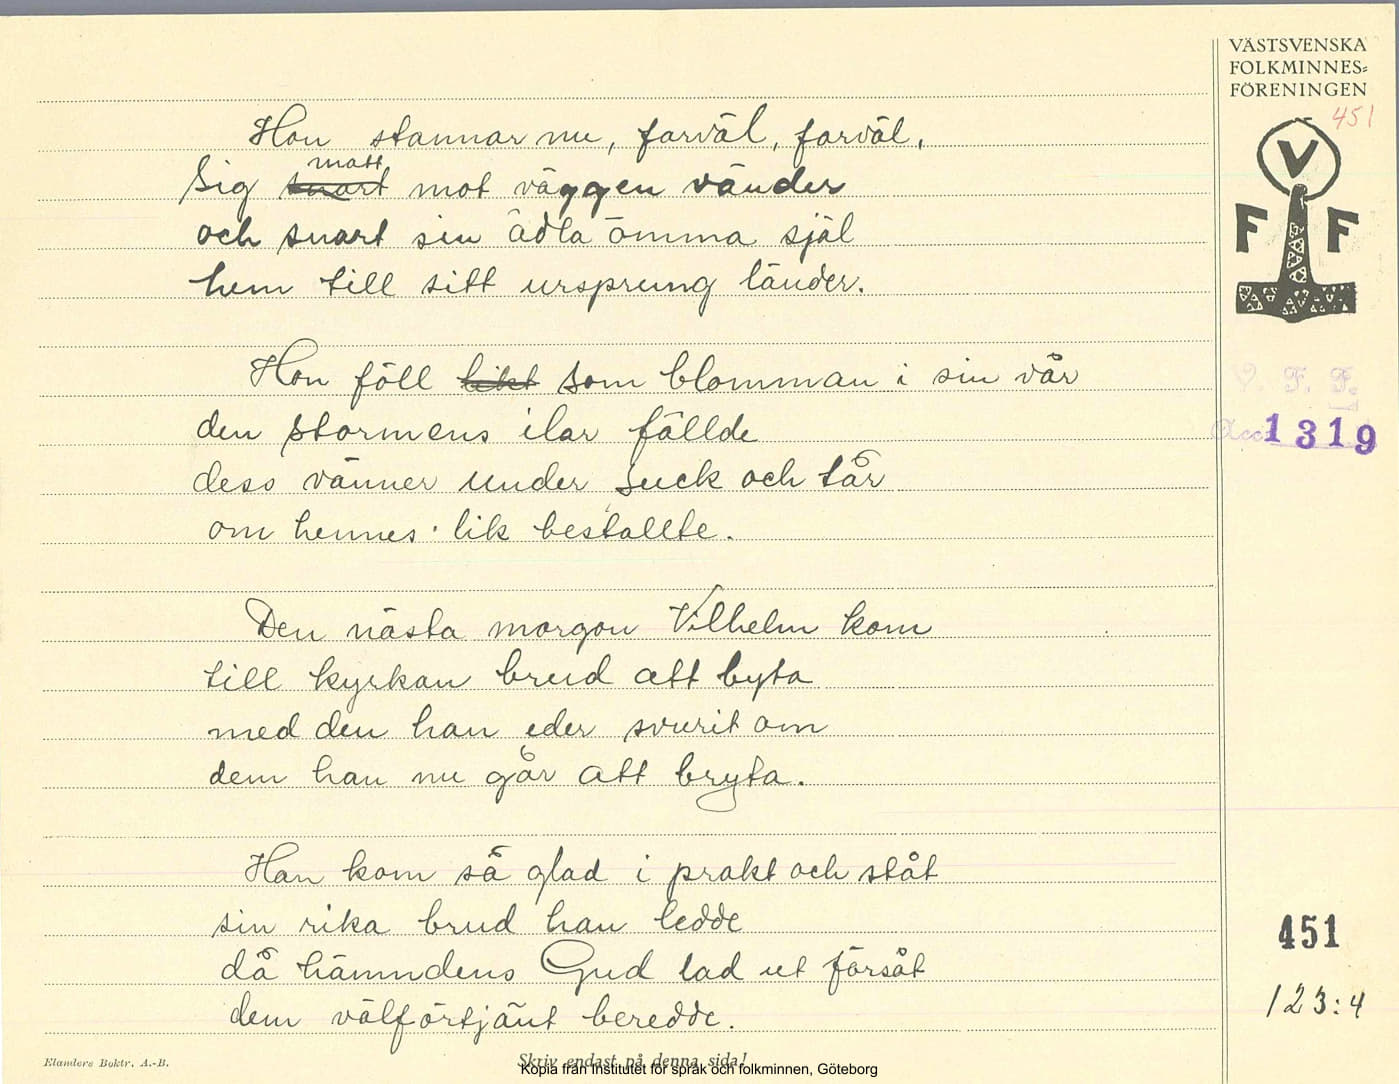 VÄSTSVENSKA
FOLKMINNES=
FÖRENINGEN
451
V
F F
Hon stannar nu, farväl, farväl,
matt
Sig snart mot väggen vänder
och snart sin ädla ömma själ
hem till sitt ursprung länder.
Hon föll likt som blomman i sin vår
den stormens ilar fällde
dess vänner under suck och tår
om hennes lik beställte.
V. F. F.
Acc 1319
Den nästa morgon Vilhelm kom
till kyrkan brud att byta
med den han eder svurit om
dem han nu går att bryta.
Han kom så glad i prakt och ståt
sin rika brud han ledde
då hämndens Gud lad ut försåt
dem välförtjänt beredde.
451
123:4
Elanders Boktr. A.-B.
Skriv endast på denna sida!
Kopia från Institutet för språk och folkminnen, Göteborg